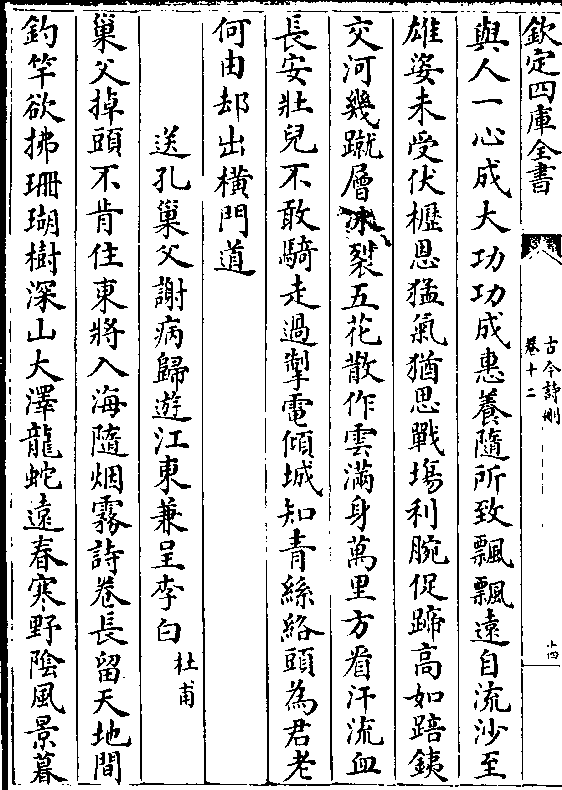 欽定四庫全書
古今詩刪
卷十二
十四
與人一心成大功功成惠養隨所致飄飄遠自流沙至
雄姿未受伏櫪恩猛氣猶思戰塲利腕促蹄高如踣鐵
交河幾蹴層冰裂五花散作雲滿身萬里方看汗流血
長安壯兒不敢騎走過掣電傾城知青絲絡頭為君老
何由却出横門道
送孔巢父謝病歸遊江東兼呈李白
杜甫
巢父掉頭不肯住東將入海隨烟霧詩卷長留天地間
釣竿欲拂珊瑚樹深山大澤龍蛇遠春寒野陰風景暮